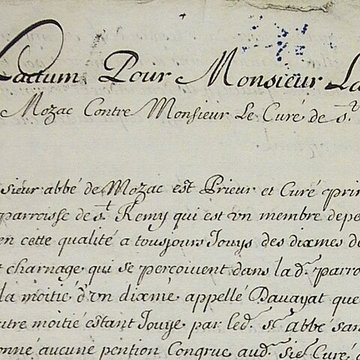 Factum Pour Monsieur La
Mozac Contre Monsieur Le Curé de s.t
sieur abbé de Mozac est Prieur et Curé prim
parroisse de s.t Remy qui est vn membre depe
en cette qualité a tousjours Jouys des dixmes de
t charnage qui se perçoiuent dans la d. parro
la moitié d'vn dixme appellé Dauayat que
utre moitié estant Jouye par led. s.r abbé san
onné aucune pention Congrue aud. sie.r Curé d